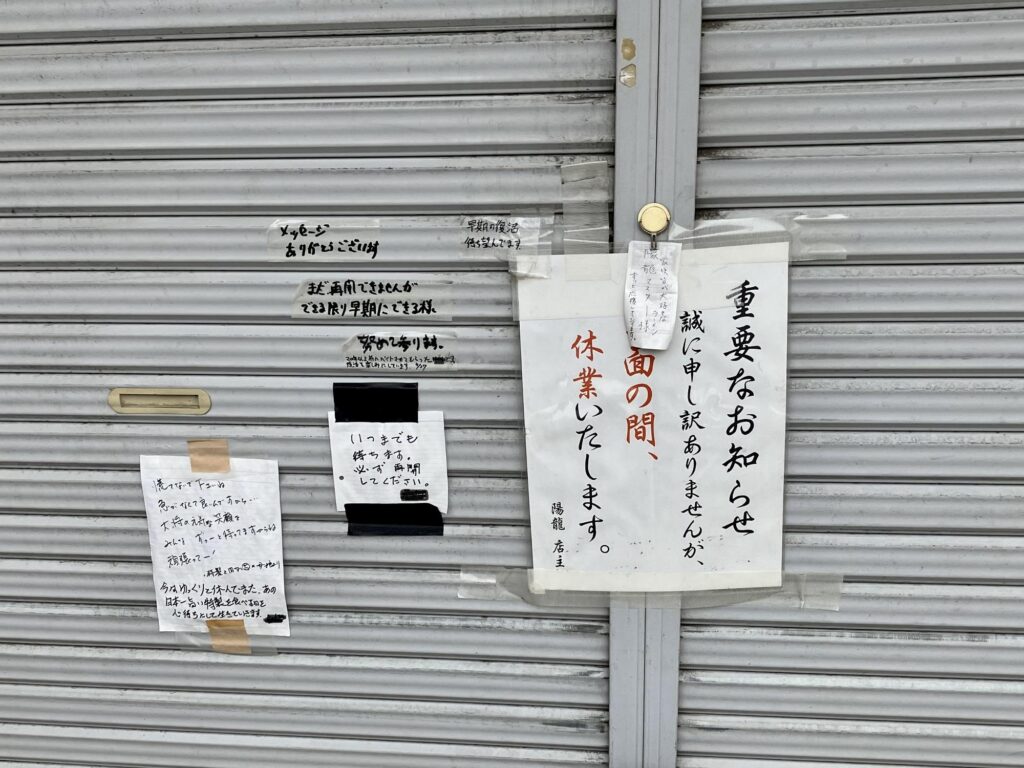 重要なお知らせ
誠に申し訳ありませんが、
面の間、
休業いたします。
陽龍 店主
メッセージ
ありがとうございます
早期の復活
待ち望んでます
まだ再開できませんが
できる限り早期にできる様、
努めて参ります。
いつまでも
待ちます。
必ず再開
してください。
大将の元気な笑顔を
みんな ずーっと待ってますからね
頑張ってー!
今はゆっくりと休んで また、あの
日本一旨い特製を食べる日を
心待ちにして生きていきます